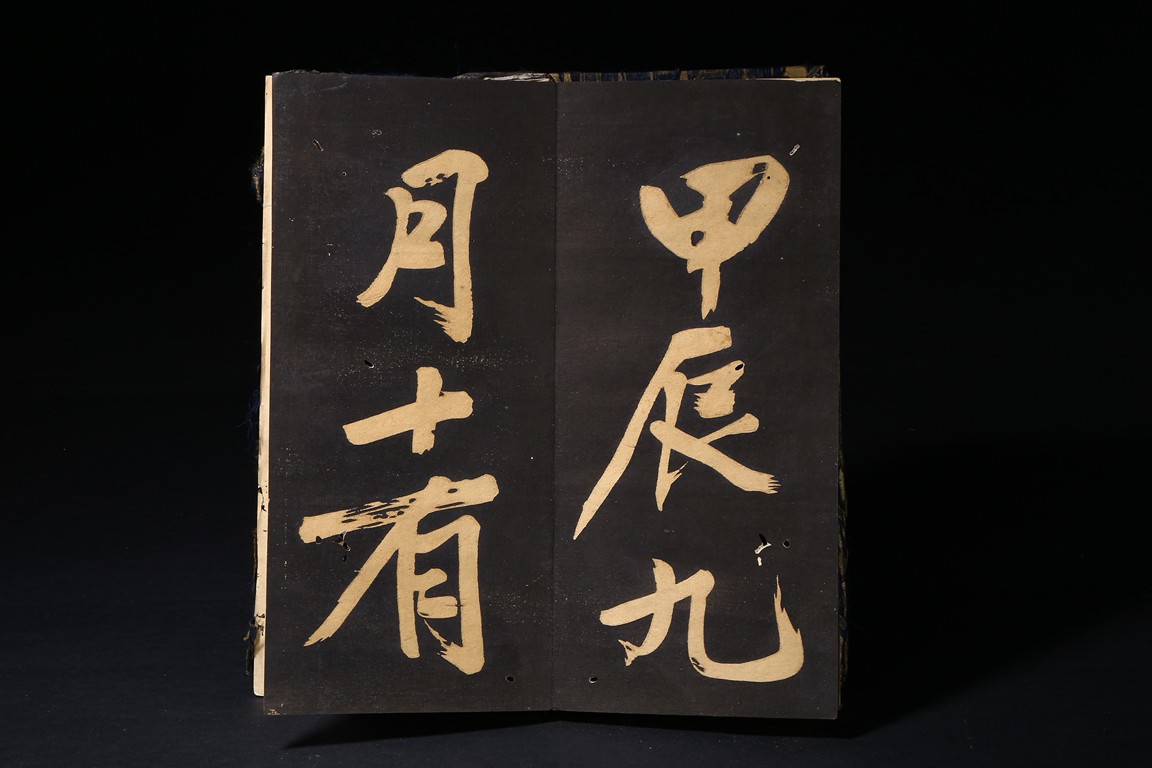 甲辰九
月十有